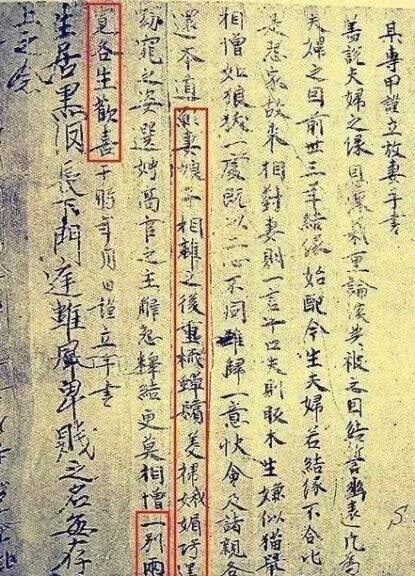 某專甲謹立放妻手書
蓋說夫婦之緣恩深義重論談共被之因結誓幽遠凡為
夫婦之因前世三年結緣始配今生夫婦若結緣不合比
是怨家故來相對妻則一言十口夫則販木生嫌似猫鼠
相憎如狼一處既以二心不同難歸一意快會及諸親各
還本道願妻娘子相離之後重梳蟬鬢美掃娥媚巧逞
窈窕之姿選娉高官之主解怨釋結更莫相憎一別兩
寬各生歡喜于時年月日謹立手書
生居黑長下門庭雖卑賤之名每存
上之念
S.